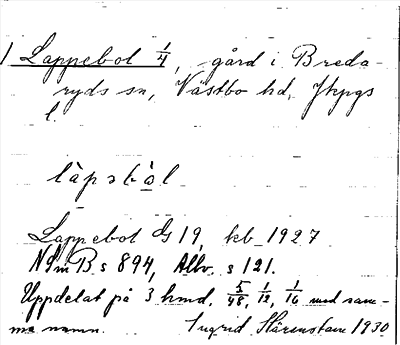 1 Lappebol 1/4, gård i Breda-
ryds sn, Västbo hd, Jkpgs
l.
làpsbòl
Lappebol G 19, kb 1927
NgmB s 894, Albv. s 121.
Uppdelat på 3 hmd. 5/48, 1/12, 1/16 med sam-
ma namn. Ingrid Härenstam 1930